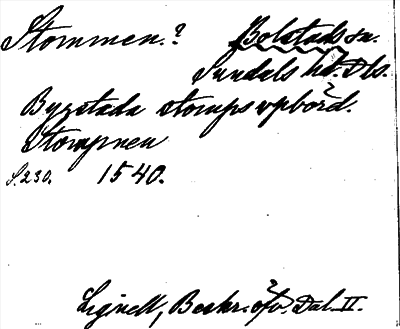 Stommen.? Bolstads sn.
Sundals hd. Dls.
Bygstada stomps vpbörd.
Stompnen
S.230. 1540.
Lignell, Beskr. öfv. Dal. II.